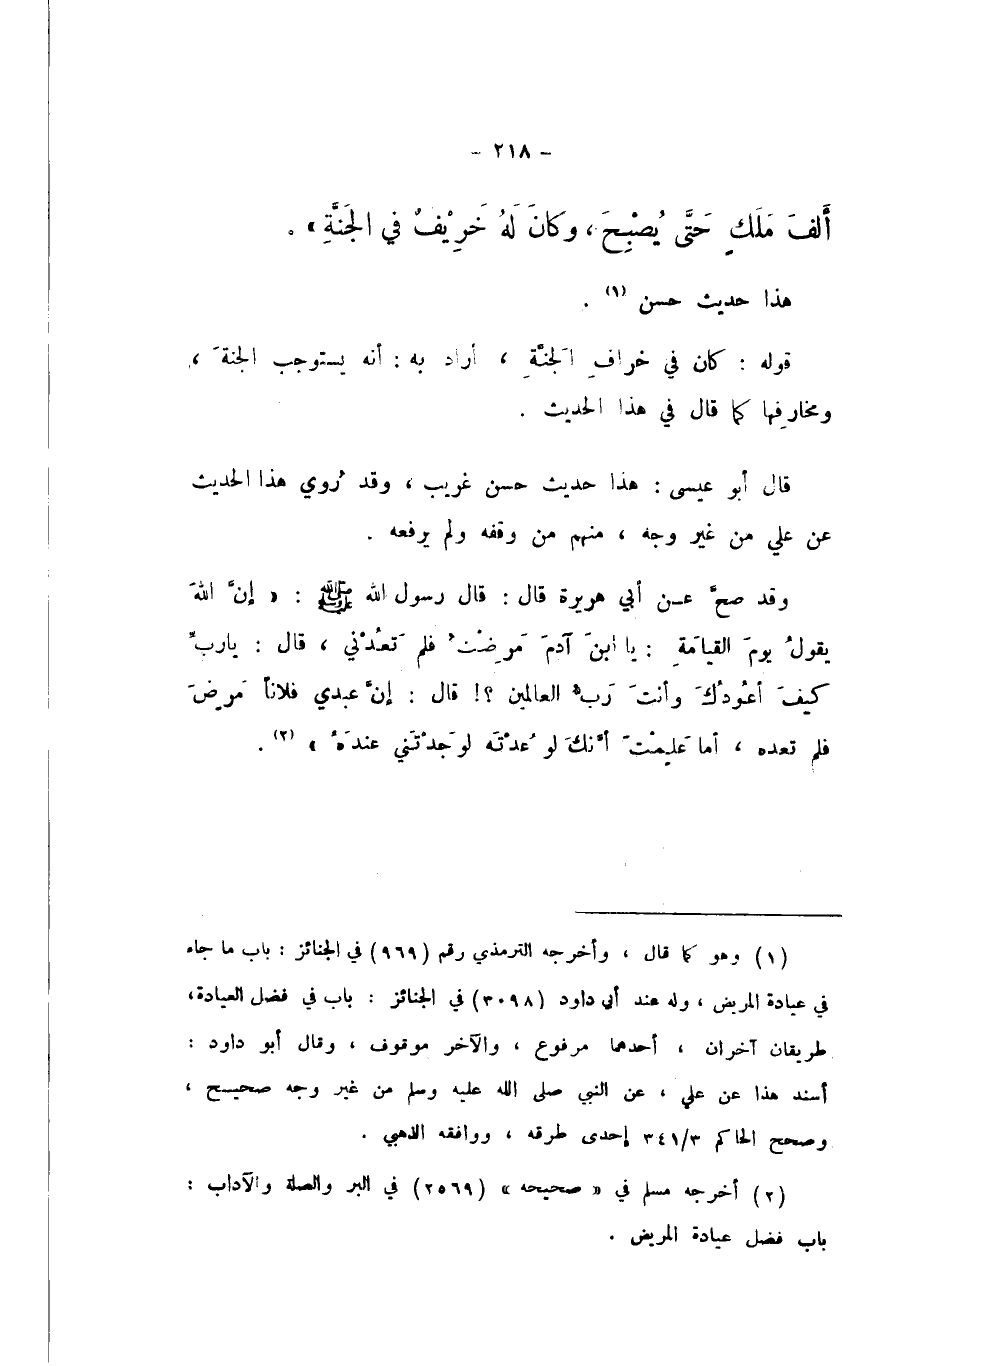 - ٢١٨ -
أَلفَ مَلَكٍ حَتَّى يُصْبِحَ ، وكانَ لَهُ خَرِيْفٌ في الجَنَّةِ » .
هذا حديث حسن (١) .
قوله : كان في خرافِ الجنَّةِ ، أراد به : أنه يستوجب الجنةَ ،
ومخارِفها كما قال في هذا الحديث .
قال أبو عيسى : هذا حديث حسن غريب ، وقد رُوي هذا الحديث
عن علي من غير وجه ، منهم من وقفه ولم يرفعه .
وقد صحَّ عـن أبي هريرة قال : قال رسول الله ﷺ : « إنَّ اللهَ
يقولُ يومَ القيامَةِ : يا ابنَ آدمَ مَرِضْتُ فلم تَعُدْني ، قال : يارب
كيفَ أعُودُكَ وأنتَ رَبُّ العالمين ؟! قال : إنَّ عبدي فلاناً مَرِضَ
فلم تعده ، أما عَلِمْتَ أنَّكَ لو عُدْتَه لوَجَدْتَني عندَهُ » (٢) .
(١) وهو كما قال ، وأخرجه الترمذي رقم (٩٦٩) في الجنائز : باب ما جاء
في عيادة المريض ، وله عند أبي داود (٣٠٩٨) في الجنائز : باب في فضل العيادة،
طريقان آخران ، أحدهما مرفوع ، والآخر موقوف ، وقال أبو داود :
أسند هذا عن علي ، عن النبي صلى الله عليه وسلم من غير وجه صحيـح ،
وصحح الحاكم ٣٤١/٣ إحدى طرقه ، ووافقه الذهبي .
(٢) أخرجه مسلم في « صحيحه » (٢٥٦٩) في البر والصلة والآداب :
باب فضل عيادة المريض .